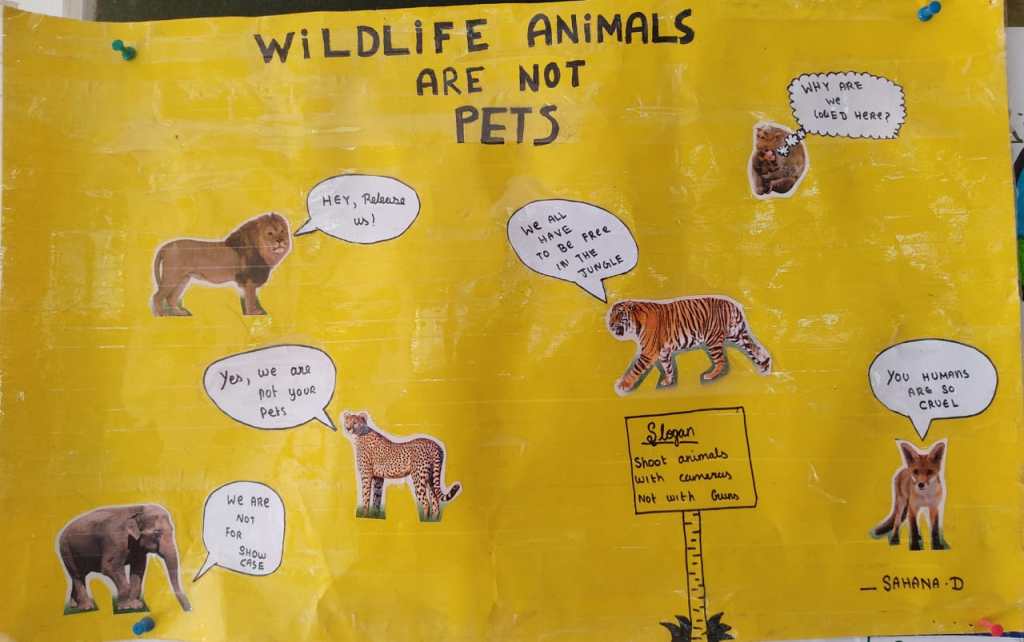 WiLDLiFE ANiMALS
ARE NOT
PETS
WHY ARE
we
LOCED HERE?
HEY, Release
us!
We ALL
HAVE
TO BE FREE
IN THE
JUNGLE
Yes, we are
not your
Pets
YOU HUMANS
ARE SO
CRUEL
Slogan
Shoot animals
With cameras
Not with Guns
We ARE
NOT
FOR
SHOW
CASE
- SAHANA.D